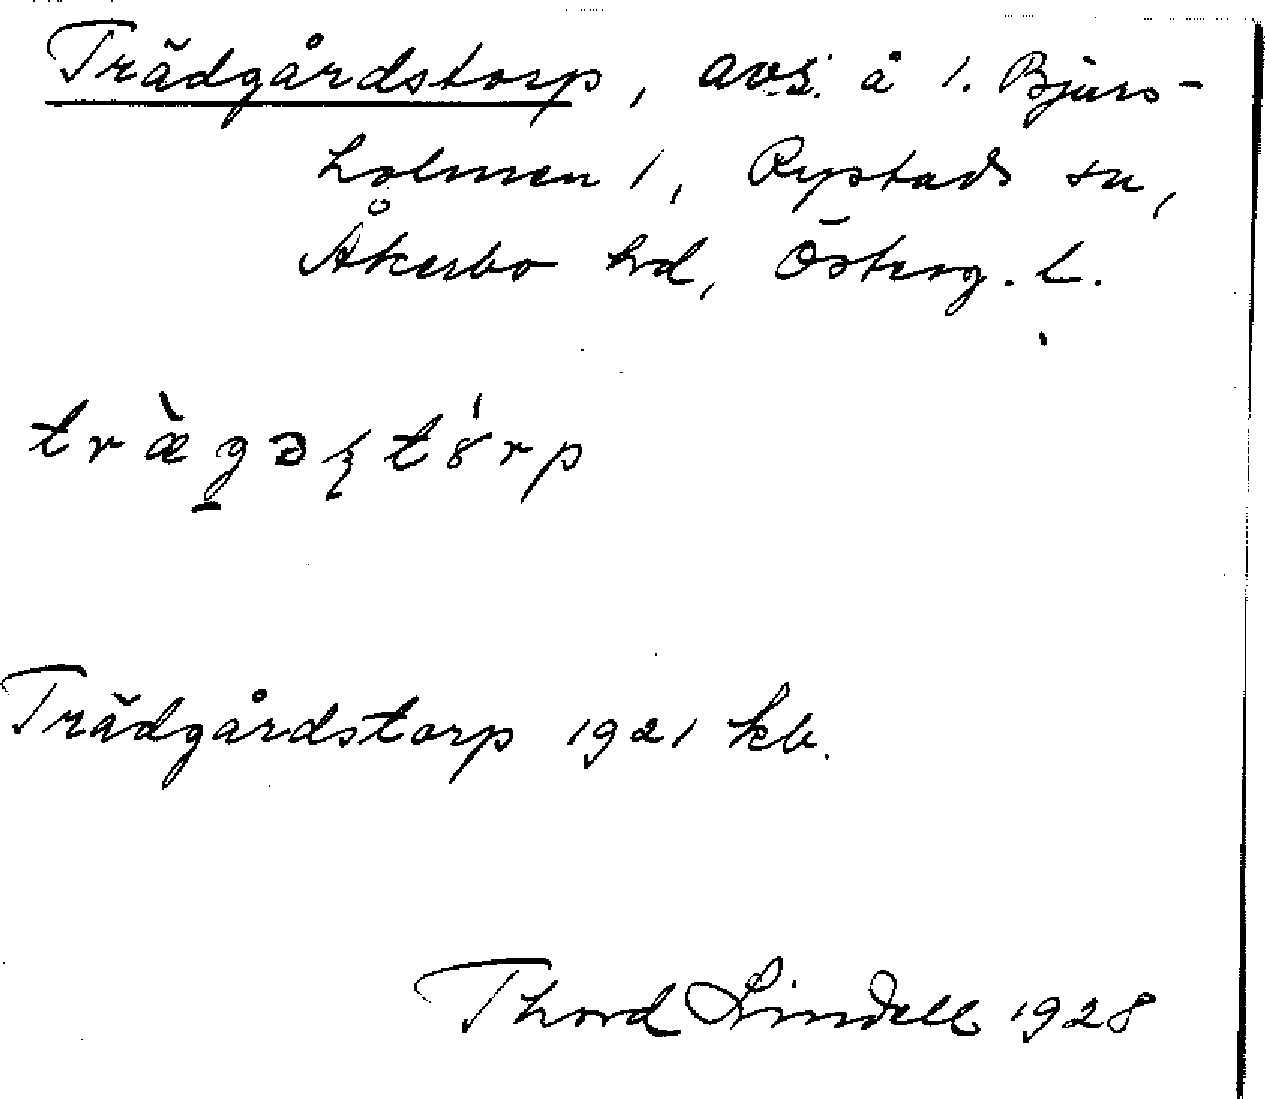 Trädgårdstorp, avs. å 1. Bjurs-
holmen 1, Rystads sn,
Åkerbo hd, Österg. l.
træ̀gəʂtórp
Trädgårdstorp 1921 kb.
Thord Lindell 1928